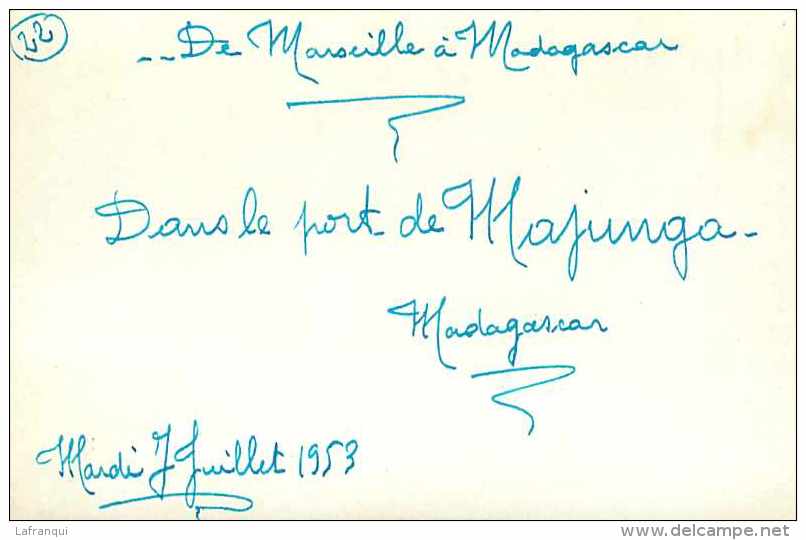 22
--De Marseille à Madagascar
Dans le port de Majunga-
Madagascar
Mardi 7 Juillet 1953
Lafranqui
www.delcampe.net